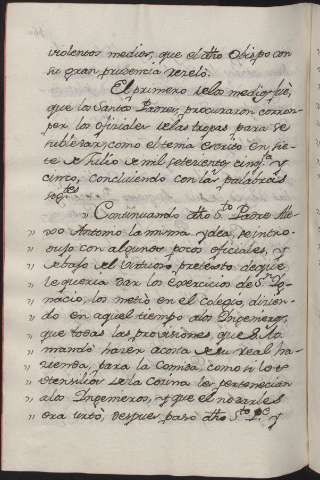 violentos medios, que el dho Obispo con
su gran prudencia reveló.
El primero de los medios fué,
que los Santos Padres, procuraron corrom-
per los oficiales de las tropas para se
, como el tenia escrito en sie-
te de Julio de mil setecientos cinqta y
cinco, concluiendo con las palabras
sigtes
" Continuando dho Sto Padre Ale-
" xo Antonio la misma ydea, se intro-
" dujo con algunos pocos oficiales, y
" debajo del virtuoso pretexto de que
" le queria dar los exercicios de Sn Yg-
" nacio, los metió en el Colegio, dicien-
" do en aquel tiempo a los Ingenieros,
" que todas las provisiones, que S. Ma
" mandó hazer a costa de su real ha-
" zienda, para la Comida, como si los
" utensilios de la Cocina les pertenecian
" a los Ingenieros, y que el no darles
" era hurto, despues pasó dho Sto Pe y